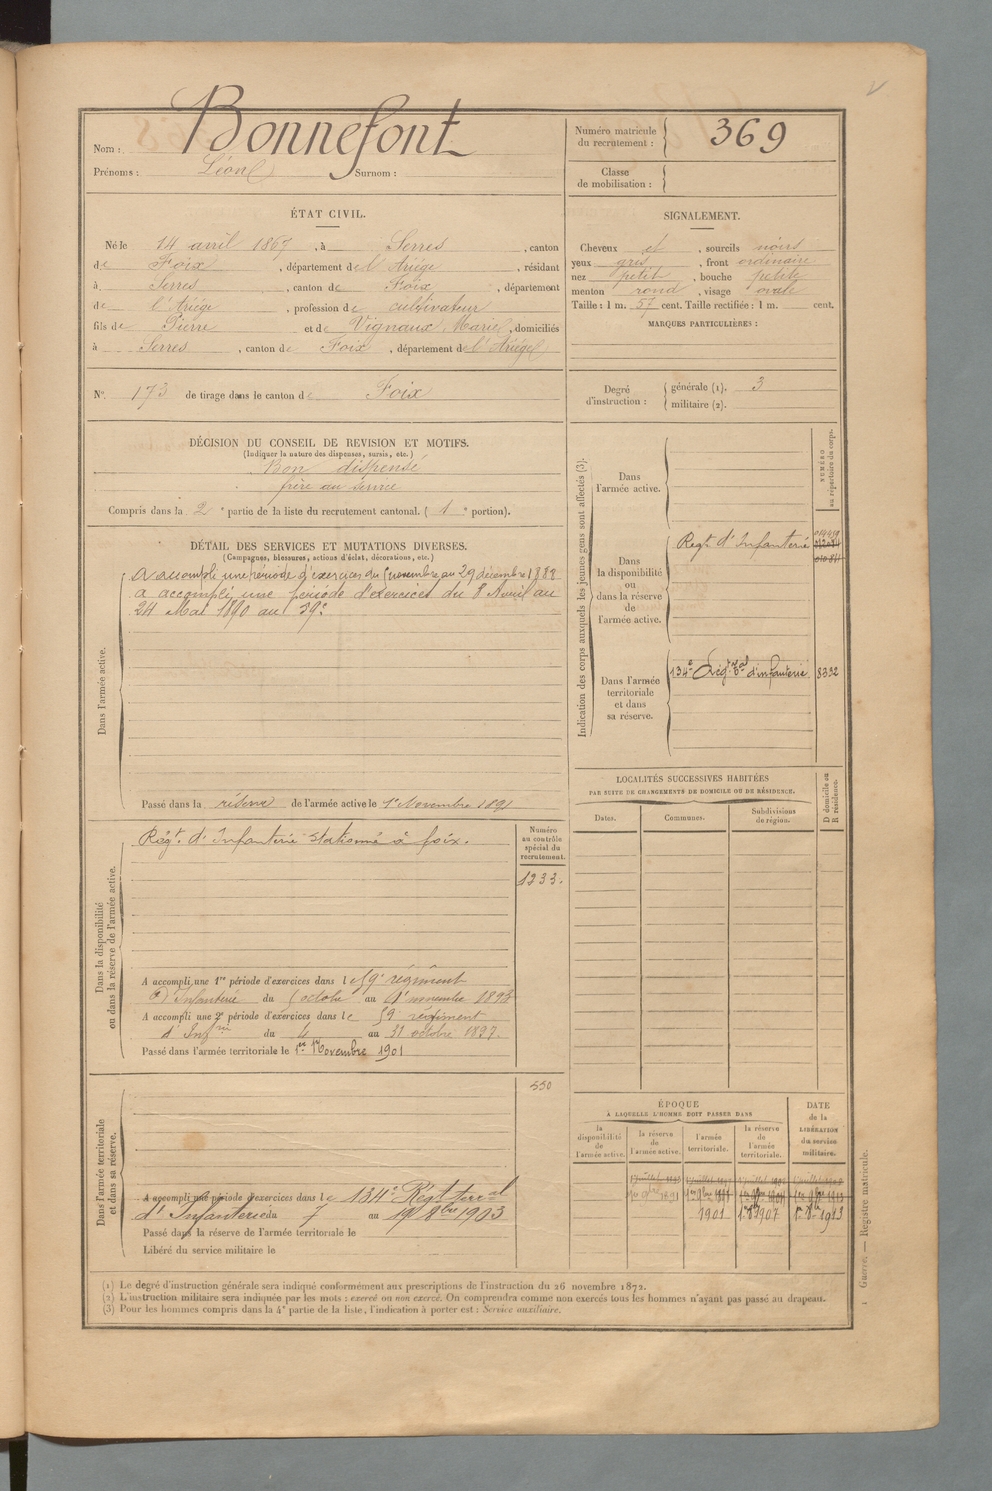 Nom : Bonnefont
Prénoms : Léon Surnom :
Numéro matricule du recrutement : 369
Classe de mobilisation :
ÉTAT CIVIL.
Né le 14 avril 1867, à Serres, canton
de Foix, département de l'Ariège, résidant
à Serres, canton de Foix, département
de l'Ariège, profession de cultivateur
fils de Pierre et de Vignaux Marie, domiciliés
à Serres, canton de Foix, département de l'Ariège
SIGNALEMENT.
Cheveux et, sourcils noirs
yeux gris, front ordinaire
nez petit, bouche petite
menton rond, visage ovale
Taille : 1 m. 57 cent. Taille rectifiée : 1 m. cent.
MARQUES PARTICULIÈRES :
N° 173 de tirage dans le canton de Foix
Degré d'instruction : générale (1). 3
militaire (2).
DÉCISION DU CONSEIL DE REVISION ET MOTIFS.
(Indiquer la nature des dispenses, sursis, etc.)
Bon dispensé
frère au service
Compris dans la 2e partie de la liste du recrutement cantonal. (1e portion).
DÉTAIL DES SERVICES ET MUTATIONS DIVERSES.
(Campagnes, blessures, actions d'éclat, décorations, etc.)
Dans l'armée active.
A accompli une période d'exercices du novembre au 29 décembre 1888
a accompli une période d'exercices du 8 Avril au
24 Mai 1890 au 59e
Passé dans la réserve de l'armée active le 1er Novembre 1891
Indication des corps auxquels les jeunes gens sont affectés (3).
NUMÉRO au répertoire du corps.
Dans l'armée active.
Dans la disponibilité ou dans la réserve de l'armée active.
Regt d'Infanterie
Dans l'armée territoriale et dans sa réserve.
134e Régt Tal d'infanterie 8332
LOCALITÉS SUCCESSIVES HABITÉES
PAR SUITE DE CHANGEMENTS DE DOMICILE OU DE RÉSIDENCE.
D domicile ou R résidence.
Dates. Communes. Subdivisions de région.
Dans la disponibilité ou dans la réserve de l'armée active.
Numéro au contrôle spécial du recrutement.
Régt d'Infanterie stationné à foix.
1233.
A accompli une 1re période d'exercices dans le 59e régiment
d'Infanterie du octobre au 1er novembre 1893
A accompli une 2e période d'exercices dans le 59 régiment
d'Infrie du 4 au 31 octobre 1897.
Passé dans l'armée territoriale le 1er Novembre 1901
Dans l'armée territoriale et dans sa réserve.
550
A accompli une période d'exercices dans le 134e Régt terral
d'Infanterie du 7 au 19 8bre 1903
Passé dans la réserve de l'armée territoriale le
Libéré du service militaire le
ÉPOQUE
À LAQUELLE L'HOMME DOIT PASSER DANS
DATE de la LIBÉRATION du service militaire.
la disponibilité de l'armée active.
la réserve de l'armée active.
l'armée territoriale.
la réserve de l'armée territoriale.
1901
(1) Le degré d'instruction générale sera indiqué conformément aux prescriptions de l'instruction du 26 novembre 1872.
(2) L'instruction militaire sera indiquée par les mots : exercé ou non exercé. On comprendra comme non exercés tous les hommes n'ayant pas passé au drapeau.
(3) Pour les hommes compris dans la 4e partie de la liste, l'indication à porter est : Service auxiliaire.
Guerre. — Registre matricule.